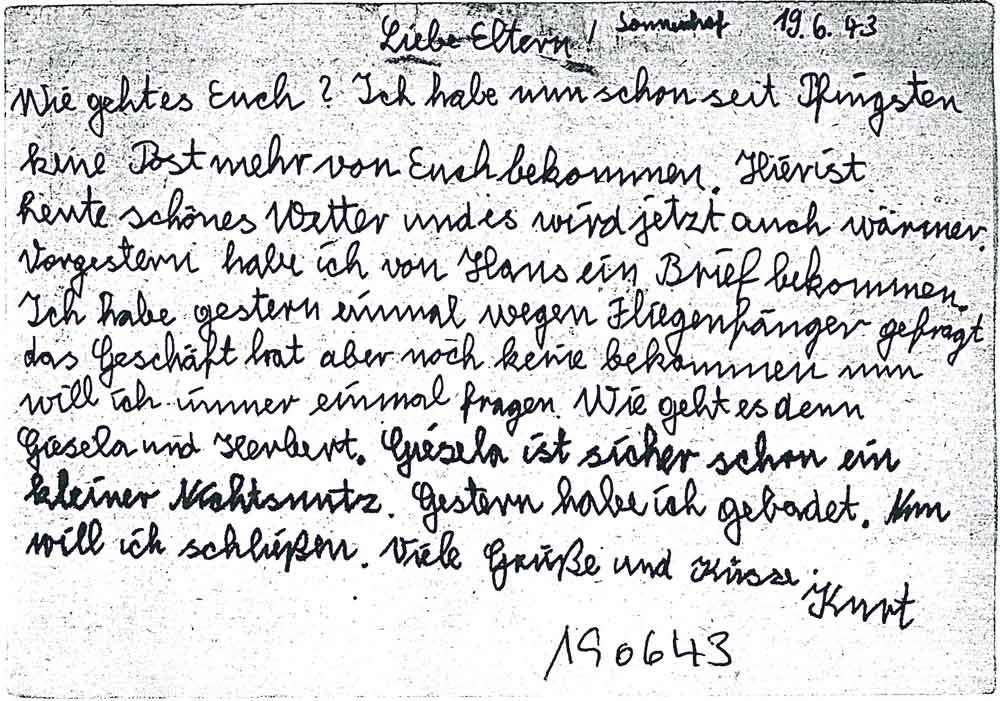 Liebe Eltern! Sonnenhof 19.6.43
Wie geht es Euch? Ich habe nun schon seit Pfingsten
keine Post mehr von Euch bekommen. Hier ist
heute schönes Wetter und es wird jetzt auch wärmer.
Vorgestern habe ich von Hans ein Brief bekommen.
Ich habe gestern einmal wegen Fliegenfänger gefragt
das Geschäft hat aber noch keine bekommen nun
will ich immer einmal fragen. Wie geht es denn
Giesela und Herbert. Giesela ist sicher schon ein
kleiner Nichtsnutz. Gestern habe ich gebadet. Nun
will ich schließen. Viele Grüße und Küsse.
Kurt
190643